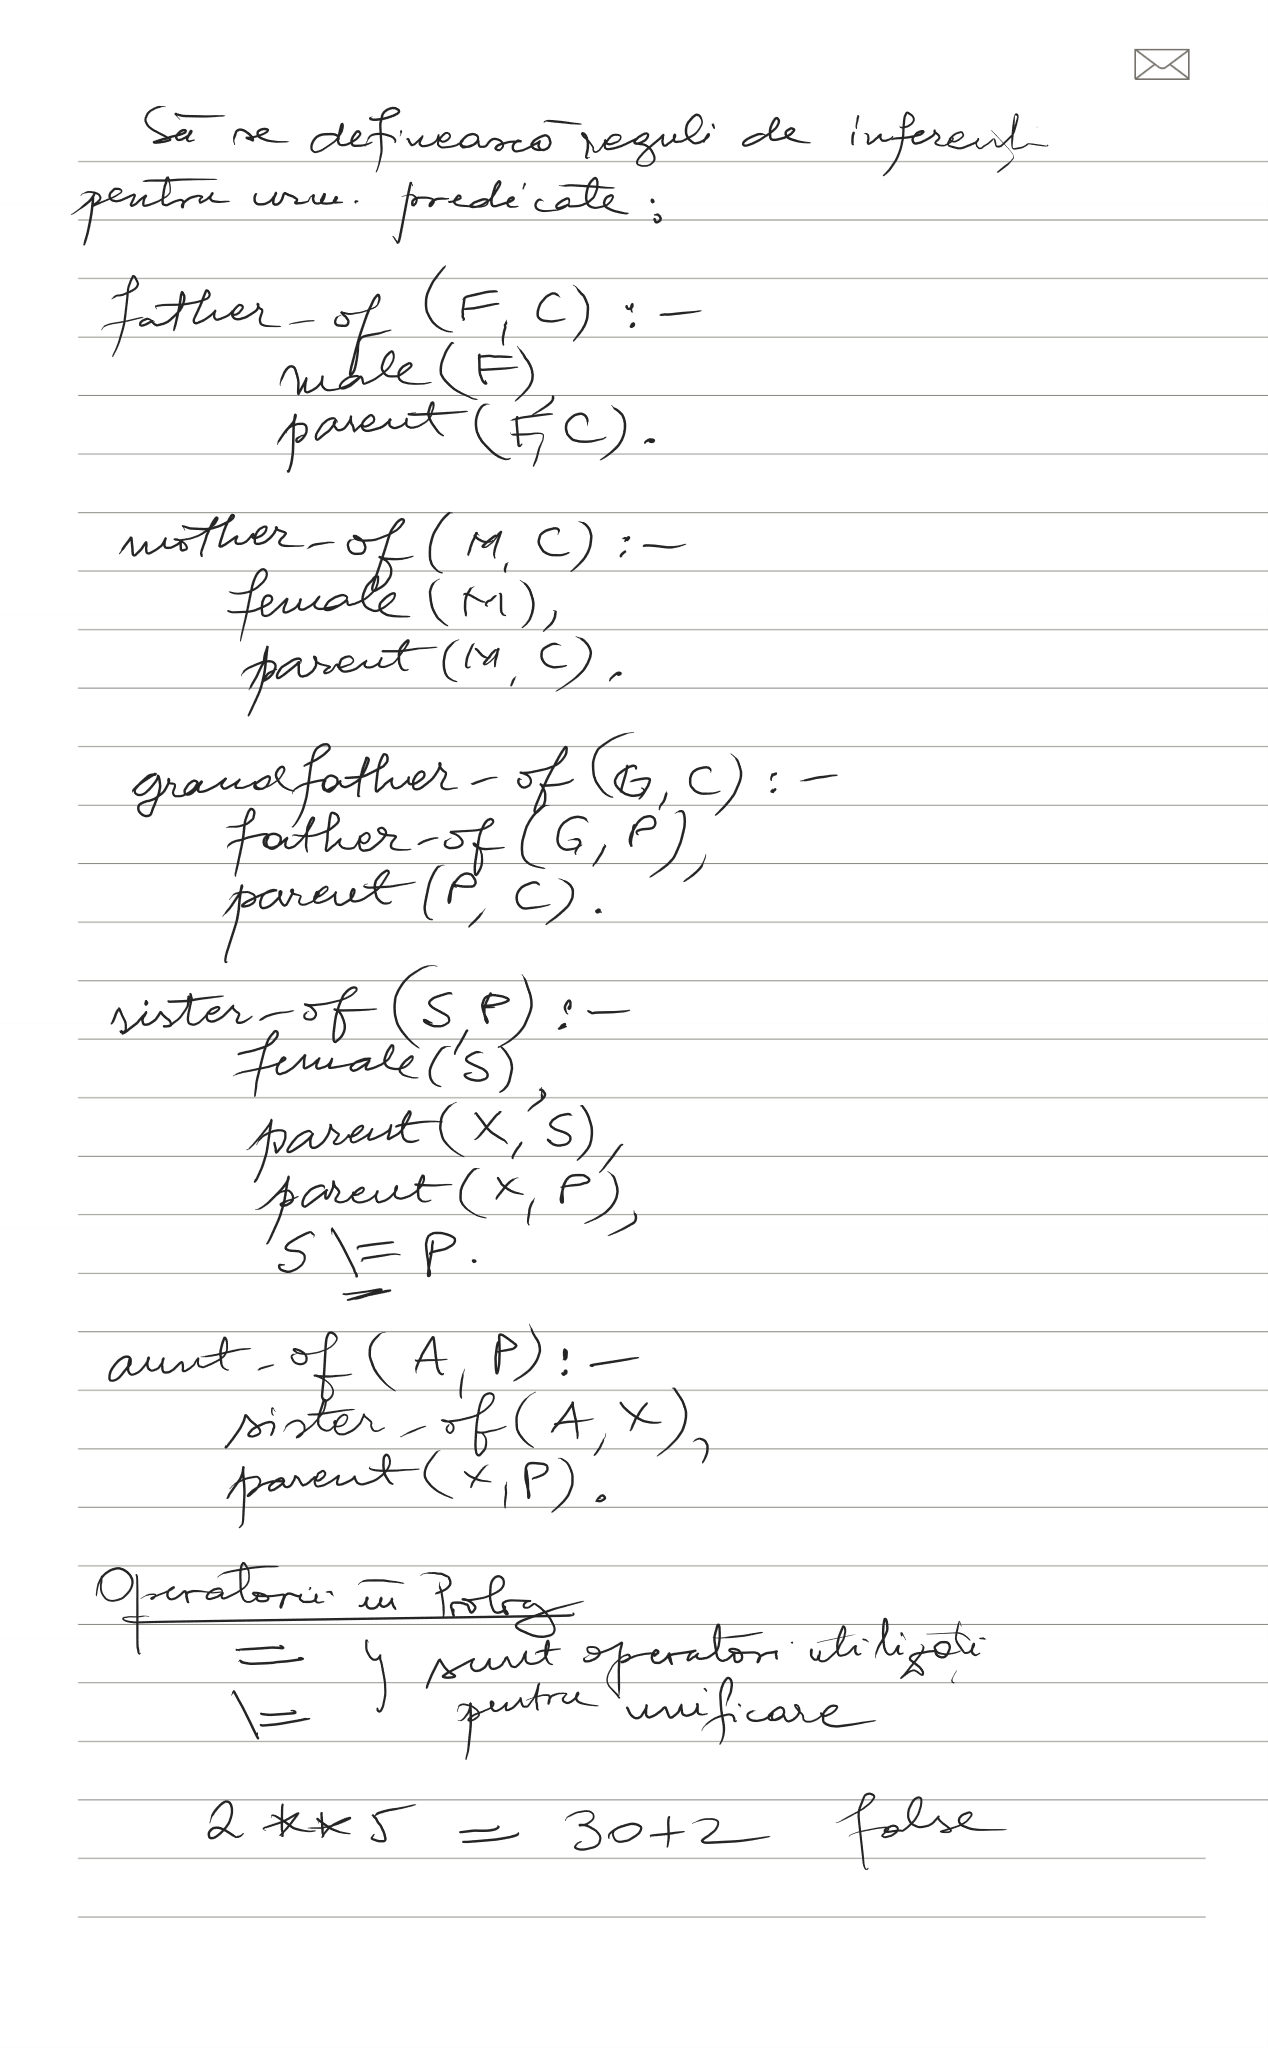 Să se definească reguli de inferenț
pentru urm. predicate:
father-of (F, C) :-
male(F),
parent(F, C).
mother-of (M, C) :-
female (M),
parent (M, C).
grandfather-of (G, C) :-
father-of (G, P),
parent (P, C).
sister-of (S, P) :-
female(S),
parent (X, S),
parent (X, P),
S \= P.
aunt-of (A, P) :-
sister-of (A, X),
parent (X, P).
Operatorii în Prolog
= } sunt operatori utilizați
\= pentru unificare
2 ** 5 = 30+2 false